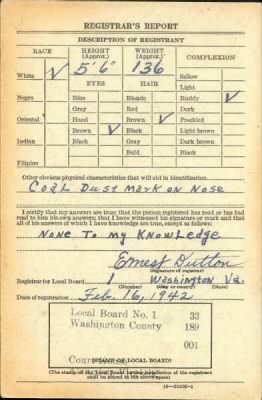 REGISTRAR'S REPORT
DESCRIPTION OF REGISTRANT
RACE HEIGHT (Approx.) WEIGHT (Approx.) COMPLEXION
5' 6" 136
White ✓ Sallow
EYES HAIR Light
Negro Blue Blonde Ruddy ✓
Gray Red Dark
Oriental Hazel Brown ✓ Freckled
Brown ✓ Black Light brown
Indian Black Gray Dark brown
Bald Black
Filipino
Other obvious physical characteristics that will aid in identification
Coal Dust Mark on Nose
I certify that my answers are true; that the person registered has read or has had
read to him his own answers; that I have witnessed his signature or mark and that
all of his answers of which I have knowledge are true, except as follows:
None To my Knowledge
Ernest Dutton
(Signature of registrar)
Registrar for Local Board 1 Washington Va.
(Number) (City or county) (State)
Date of registration Feb. 16, 1942
Local Board No. 1 33
Washington County 189
001
(STAMP OF LOCAL BOARD)
(The stamp of the Local Board having jurisdiction of the registrant
shall be placed in the above space)